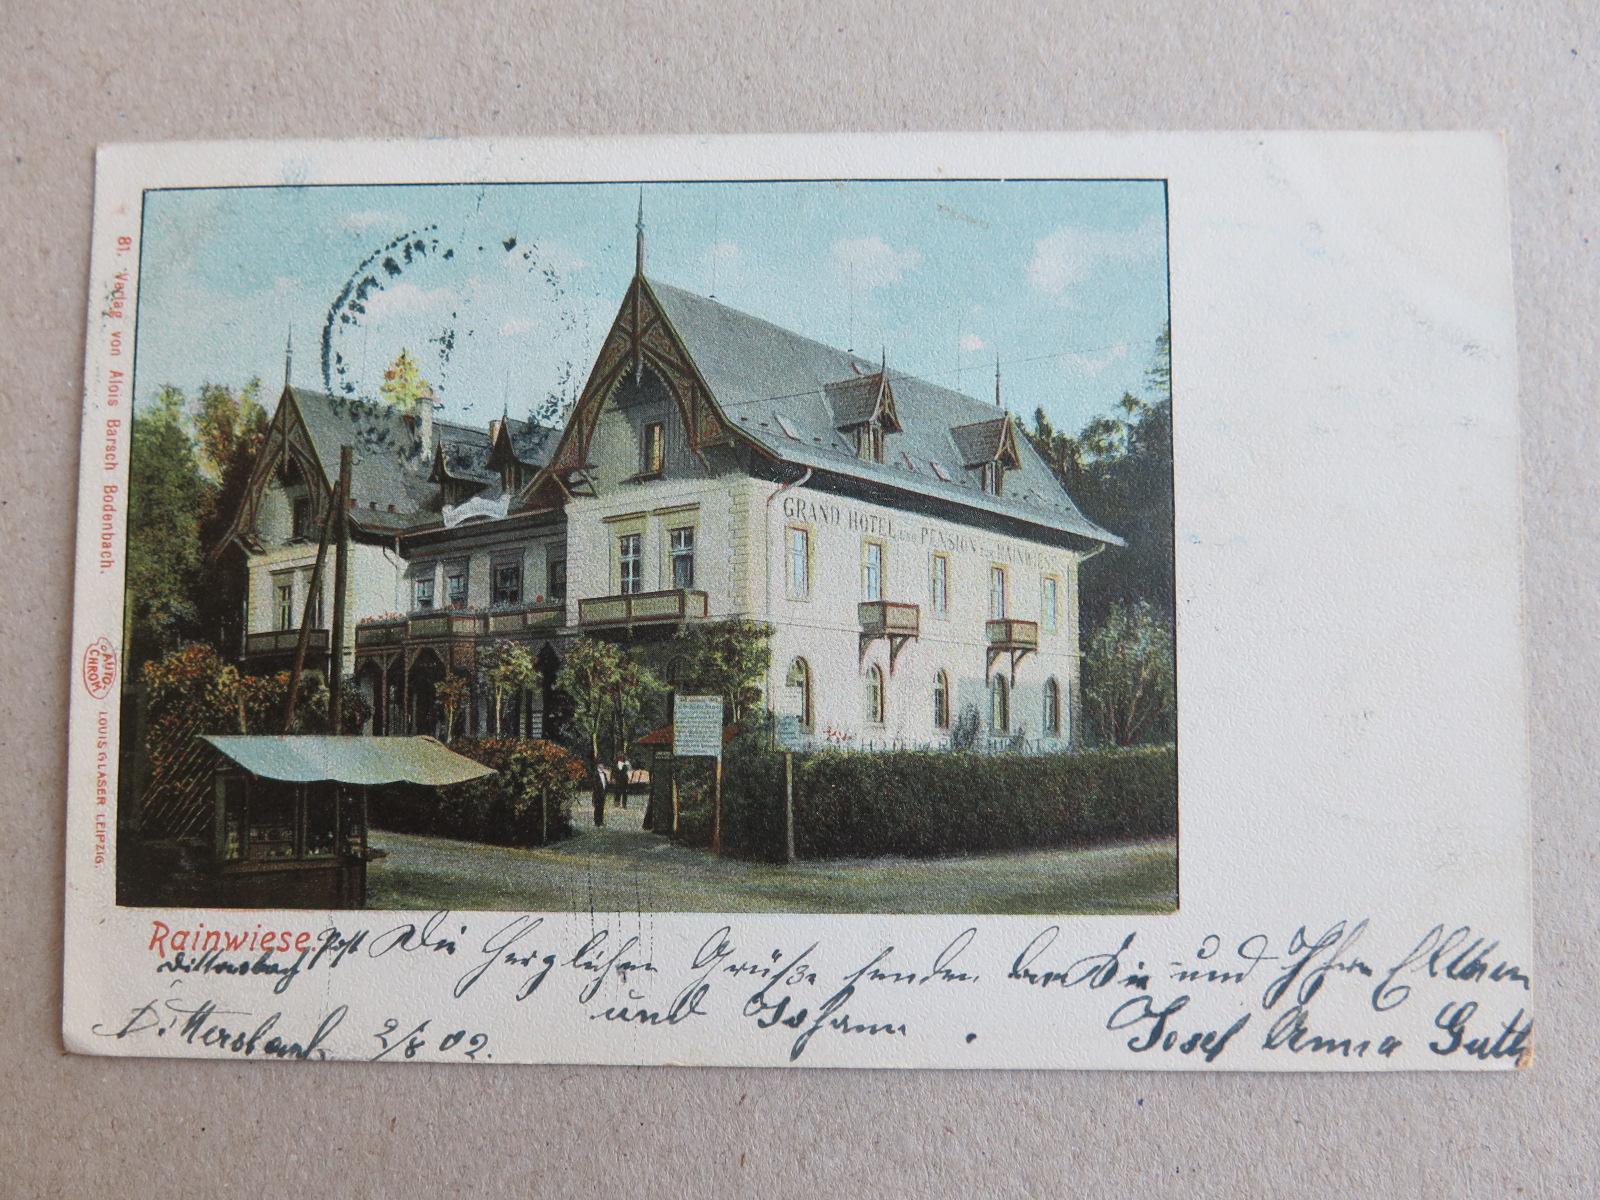 81. Verlag von Alois Barsch Bodenbach.
AUTO-
CHROM
LOUIS GLASER LEIPZIG.
GRAND HOTEL UND PENSION ZUR RAINWIESE
Rainwiese.
Post Die Herzlichen Grüße senden an Sie und Ihre Elthern
Dittersbach
und Johann.
Dittersbach 2/8 02.
Josef Anna Guth